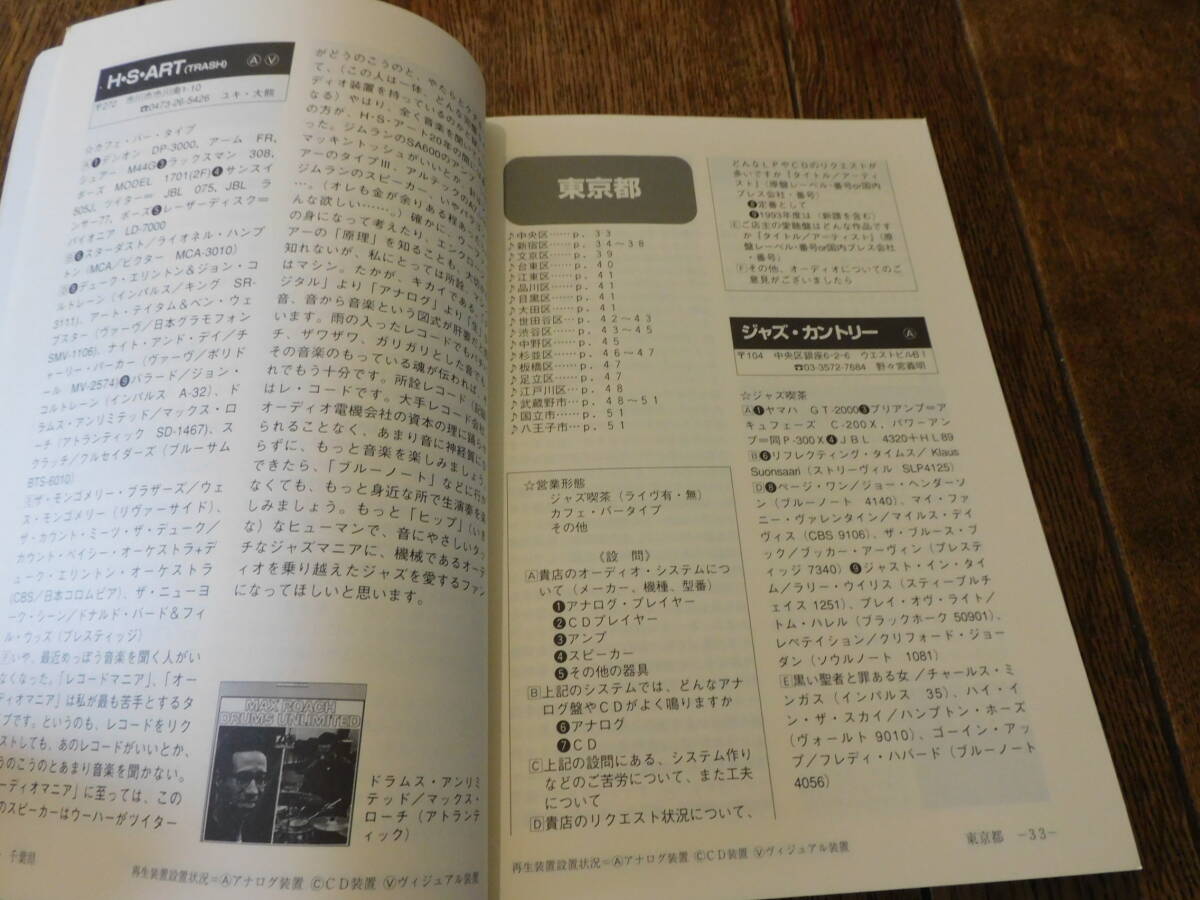 H・S・ART(TRASH) Ⓐ Ⓥ
〒272 市川市市川南1-10
☎0473-26-5426 ユキ・大熊
☆カフェ・バー・タイプ
Ⓐ❶デンオン DP-3000、アーム FR、
シュアー M44G❸ラックスマン 308、
ボーズ MODEL 1701(2F)❹サンスイ
505J、ツイター= JBL 075、JBL ラ
ンサー77、ボーズ❺レーザーディスク=
パイオニア LD-7000
Ⓑ❻スターダスト/ライオネル・ハンプ
トン(MCA/ビクター MCA-3010)
デューク・エリントン&ジョン・コ
ルトレーン(インパルス/キング SR-
3111)、アート・テイタム&ベン・ウェ
ブスター(ヴァーヴ/日本グラモフォン
SMV-1106)、ナイト・アンド・デイ/チ
ャーリー・パーカー(ヴァーヴ/ポリド
ール MV-2574)❾バラード/ジョン・
コルトレーン(インパルス A-32)、ド
ラムス・アンリミテッド/マックス・ロ
ーチ(アトランティック SD-1467)、ス
クラッチ/クルセイダーズ(ブルーサム
BTS-6010)
Ⓔザ・モンゴメリー・ブラザーズ/ウェ
ス・モンゴメリー(リヴァーサイド)、
ザ・カウント・ミーツ・ザ・デューク/
カウント・ベイシー・オーケストラ+デ
ューク・エリントン・オーケストラ
(CBS/日本コロムビア)、ザ・ニューヨ
ーク・シーン/ドナルド・バード&フィ
ル・ウッズ(プレスティッジ)
いや、最近めっぽう音楽を聞く人がい
なくなった。「レコードマニア」、「オー
ディオマニア」は私が最も苦手とするタ
イプです。というのも、レコードをリク
ストしても、あのレコードがいいとか、
うのこうのとあまり音楽を聞かない。
ーディオマニア」に至っては、この
のスピーカーはウーハーがツイター
がどうのこうのと、やたらと
て、(この人は一体、どんな
ディオ装置を持っているのか
なる)やはり、全く音楽を聞いて
の方が、H・S・アート20年の間に
った。ジムランのSA600のアンプ
マッキントッシュがいいとか、
アーのタイプⅢ、アルテックのA
ジムランのスピーカー、いやパラ
…。(オレも金が余りある程あったら
んな欲しい……。)確かに、ウェスタン
の身になって考えたり、エンクロージ
アーの「原理」を知ることも、大切かも
知れないが、私にとっては所詮、マシン
はマシン。たかが、キカイである。「デ
ジタル」より「アナログ」より「生」
音、音から音楽という図式が肝要だと思
います。雨の入ったレコードでもパチパ
チ、ザワザワ、ガリガリとした音でも、
その音楽のもっている魂が伝われば、そ
れでもう十分です。所詮レコード(記録)
はレ・コードです。大手レコード会社や
オーディオ電機会社の資本の理に踊らせ
られることなく、あまり音に神経質にな
らずに、もっと音楽を楽しみましょう。
できたら、「ブルーノート」などに行か
なくても、もっと身近な所で生演奏を楽
しみましょう。もっと「ヒップ」(いき
な)なヒューマンで、音にやさしいタッ
チなジャズマニアに、機械であるオーデ
ィオを乗り越えたジャズを愛するファン
になってほしいと思います。
MAX ROACH
DRUMS UNLIMITED
ドラムス・アンリミ
テッド/マックス・
ローチ(アトランテ
ィック)
千葉県
再生装置設置状況=Ⓐアナログ装置 ⒸCD装置 Ⓥヴィジュアル装置
東京都
♪中央区……p. 33
♪新宿区……p. 34~38
♪文京区……p. 39
♪台東区……p. 40
♪江東区……p. 41
♪品川区……p. 41
♪目黒区……p. 41
♪大田区……p. 41
♪世田谷区…p. 42~43
♪渋谷区……p. 43~45
♪中野区……p. 45
♪杉並区……p. 46~47
♪板橋区……p. 47
♪足立区……p. 47
♪江戸川区…p. 48
♪武蔵野市…p. 48~51
♪国立市……p. 51
♪八王子市…p. 51
☆営業形態
ジャズ喫茶(ライヴ有・無)
カフェ・バータイプ
その他
《設 問》
Ⓐ貴店のオーディオ・システムにつ
いて(メーカー、機種、型番)
❶アナログ・プレイヤー
❷CDプレイヤー
❸アンプ
❹スピーカー
❺その他の器具
Ⓑ上記のシステムでは、どんなアナ
ログ盤やCDがよく鳴りますか
❻アナログ
❼CD
Ⓒ上記の設問にある、システム作り
などのご苦労について、また工夫
について
Ⓓ貴店のリクエスト状況について、
どんなLPやCDのリクエストが
多いですか「タイトル/アーティ
スト」(原盤レーベル・番号or国内
プレス会社・番号)
❽定番として
❾1993年度は(新譜を含む)
Ⓔご店主の愛聴盤はどんな作品です
か「タイトル/アーティスト」(原
盤レーベル・番号or国内プレス会社
・番号)
Ⓕその他、オーディオについてのご
意見がございましたら
ジャズ・カントリー Ⓐ
〒104 中央区銀座6-2-6 ウエストビルB1
☎03-3572-7684 野々宮義明
☆ジャズ喫茶
Ⓐ❶ヤマハ GT-2000❸プリアンプ=ア
キュフェーズ C-200X、パワーアン
プ=同P-300X❹JBL 4320+HL89
Ⓑ❻リフレクティング・タイムス/ Klaus
Suonsaari(ストリーヴィル SLP4125)
Ⓓ❽ページ・ワン/ジョー・ヘンダーソ
ン(ブルーノート 4140)、マイ・ファ
ニー・ヴァレンタイン/マイルス・デイ
ヴィス(CBS 9106)、ザ・ブルース・ブ
ック/ブッカー・アーヴィン(プレステ
ィッジ 7340)❾ジャスト・イン・タイ
ム/ラリー・ウイリス(スティープルチ
ェイス 1251)、プレイ・オヴ・ライト/
トム・ハレル(ブラックホーク 50901)、
レペテイション/クリフォード・ジョー
ダン(ソウルノート 1081)
Ⓔ黒い聖者と罪ある女/チャールス・ミ
ンガス(インパルス 35)、ハイ・イ
ン・ザ・スカイ/ハンプトン・ホーズ
(ヴォールト 9010)、ゴーイン・アッ
プ/フレディ・ハバード(ブルーノート
4056)
再生装置設置状況=Ⓐアナログ装置 ⒸCD装置 Ⓥヴィジュアル装置
東京都 -33-